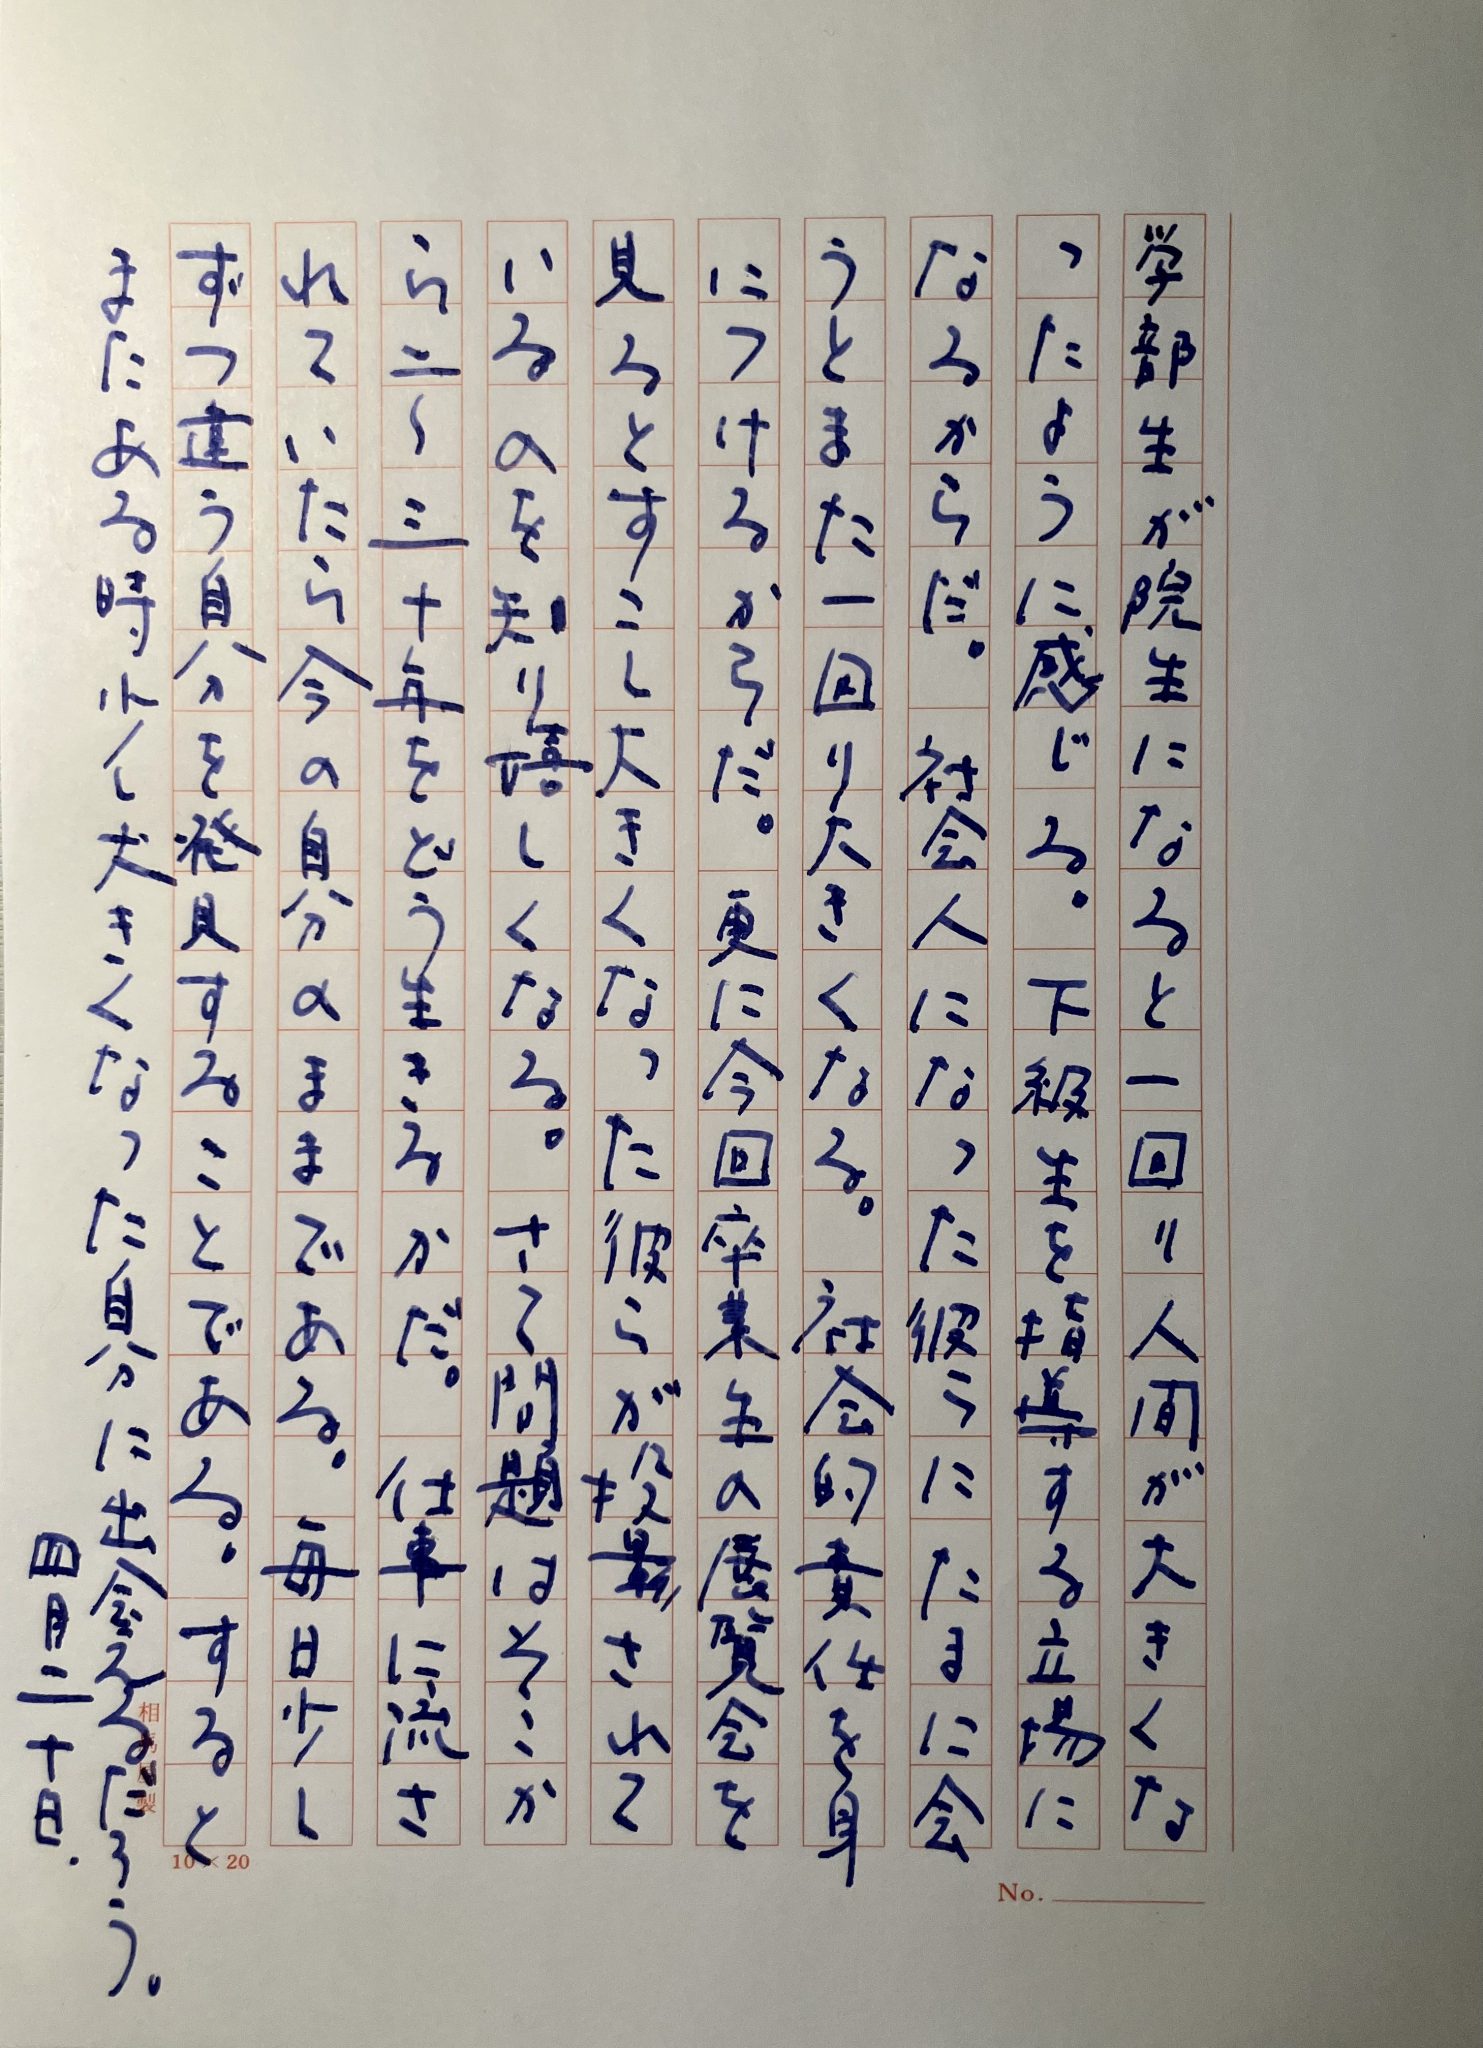 学部生が院生になると一回り人間が大きくな
ったように感じる。下級生を指導する立場に
なるからだ。社会人になった彼らにたまに会
うとまた一回り大きくなる。社会的責任を身
につけるからだ。更に今回卒業生の展覧会を
見るとすこし大きくなった彼らが投影されて
いるのを知り嬉しくなる。さて問題はそこか
ら二〜三十年をどう生きるかだ。仕事に流さ
れていたら今の自分のままである。毎日少し
ずつ違う自分を発見することである。すると
またある時少し大きくなった自分に出会えるだろう。
四月二十日.
10×20
No.